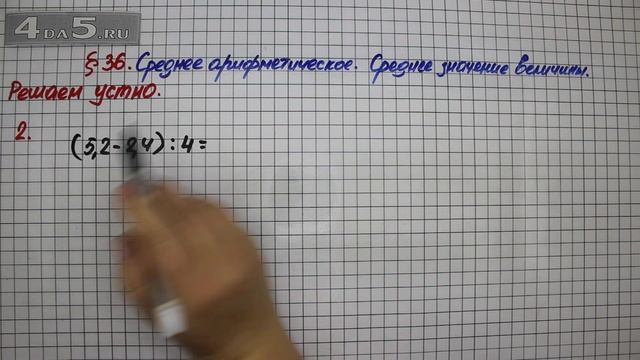 4DA5.RU
§ 36. Среднее арифметическое. Среднее значение величины.
Решаем устно.
2.
(5,2-2,4):4=